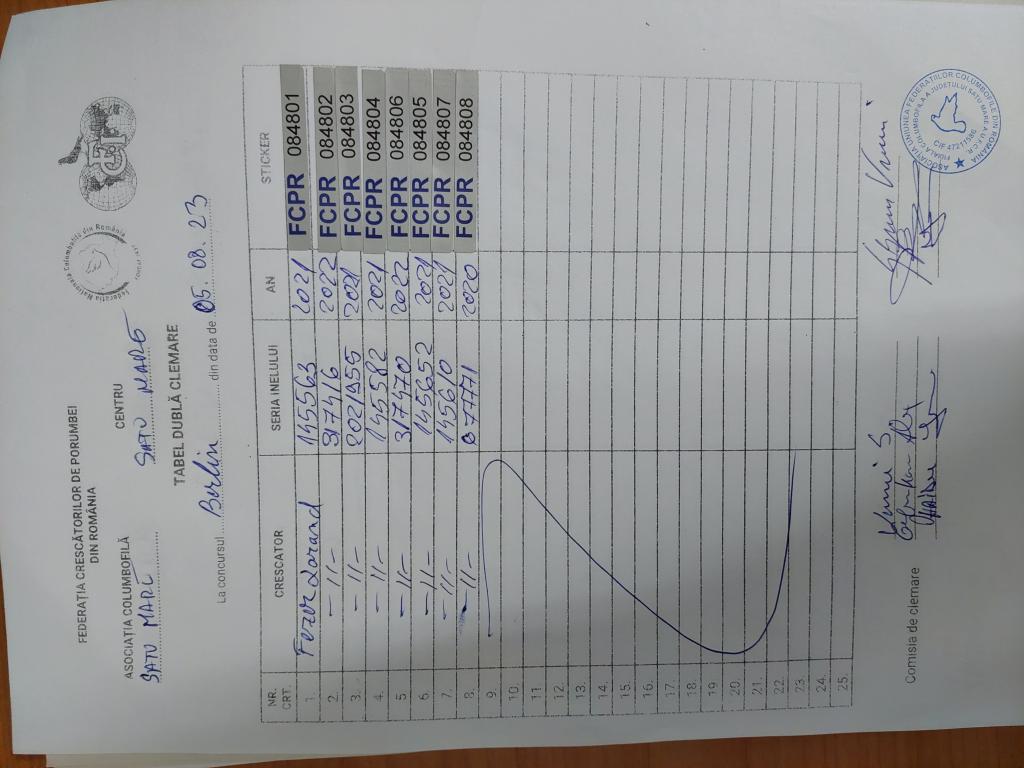 FEDERAȚIA CRESCĂTORILOR DE PORUMBEI
DIN ROMÂNIA
ASOCIAȚIA COLUMBOFILĂ CENTRU
SATU MARE SATU MARE
TABEL DUBLĂ CLEMARE
La concursul Berlin din data de 05.08.23
NR. CRT. CRESCATOR SERIA INELULUI AN STICKER
1. 145563 2021 FCPR 084801
2. -11- 317416 2022 FCPR 084802
3. -11- 2021 FCPR 084803
4. -11- 145582 2021 FCPR 084804
5 -11- 317470 2022 FCPR 084806
6. -11- 145652 2021 FCPR 084805
7. -11- 145610 2021 FCPR 084807
8. -11- 2020 FCPR 084808
9.
10.
11
12.
13.
14.
15.
16.
17.
18.
19
20.
21.
22.
23.
24.
25.
Comisia de clemare
Federația Națională Columbofilă din România
ASOCIAȚIA UNIUNEA FEDERAȚIILOR COLUMBOFILE DIN ROMANIA
CIF 47211586